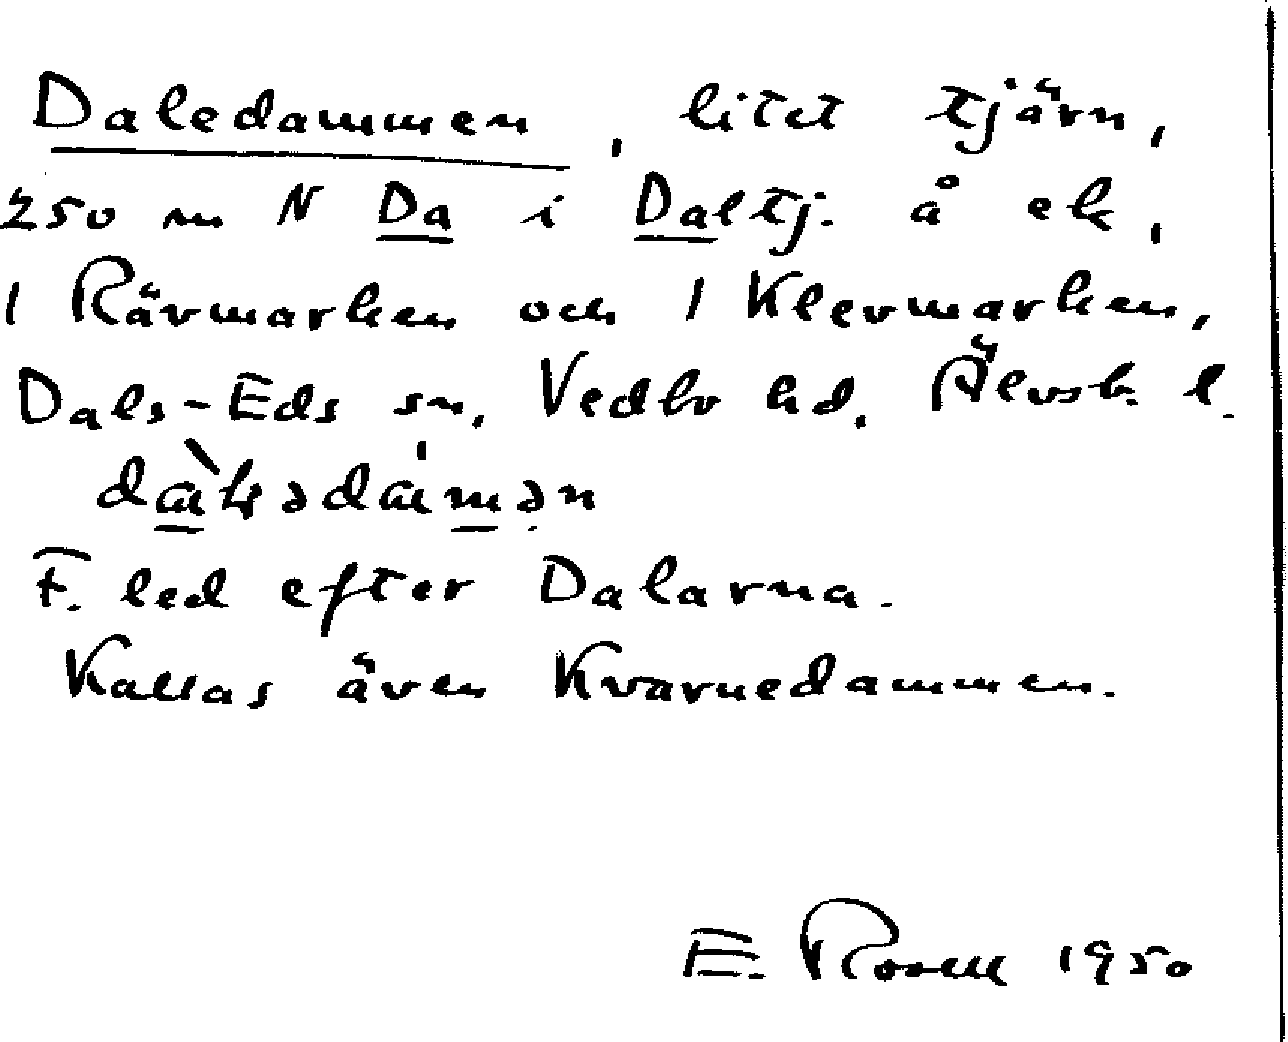 Daledammen, litet tjärn,
250 m N Da i Daltj. å ek,
1 Rävmarken och 1 Klevmarken,
Dals-Eds sn, Vedbo hd. Älvsb. l.
F. led efter Dalarna.
Kallas även Kvarnedammen.
E. 1950